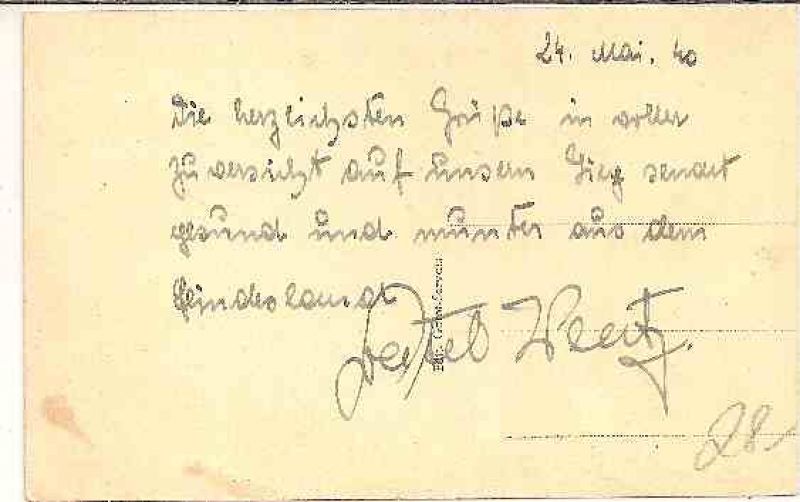 24. Mai. 40
Die herzlichsten Grüße in voller
Zuversicht auf unsern Sieg sendet
gesund und munter aus dem
Feindesland
28